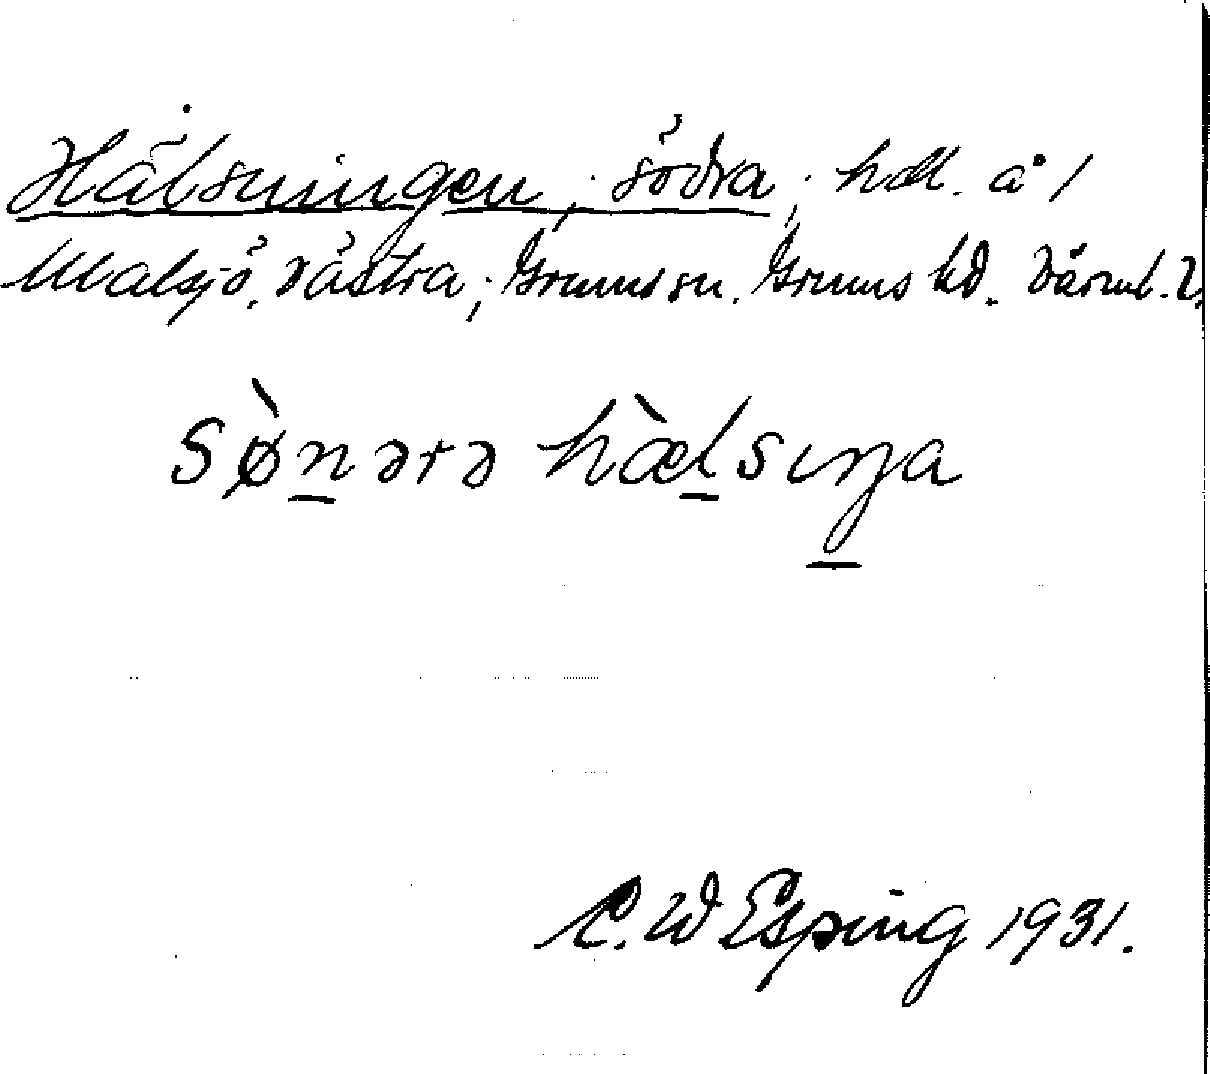 Hälsningen, södra, hdl. å 1
Malsjö, västra, Grums sn. Grums hd. Värml. l.
sø̀nərə hæ̀lsıŋa
C. W Esping 1931.